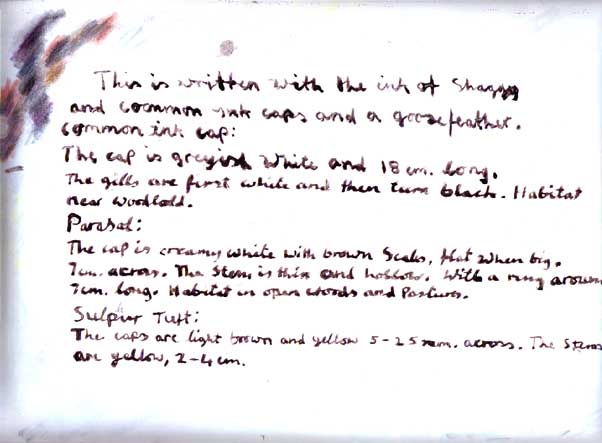 This is written with the ink of Shaggy
and common ink caps and a goose feather.
Common ink cap:
The cap is greyish white and 18 cm. long.
The gills are first white and then turn black. Habitat
near woodlald.
Parasal:
The cap is creamy white with brown Scals, flat when big.
7cm. across. The Stem is thin and hollow. With a ring aroun
7cm. long. Habitat in open woods and Pastures.
Sulpur Tuft:
The caps are light brown and yellow 5-25mm. across. The Stems
are yellow, 2-4cm.